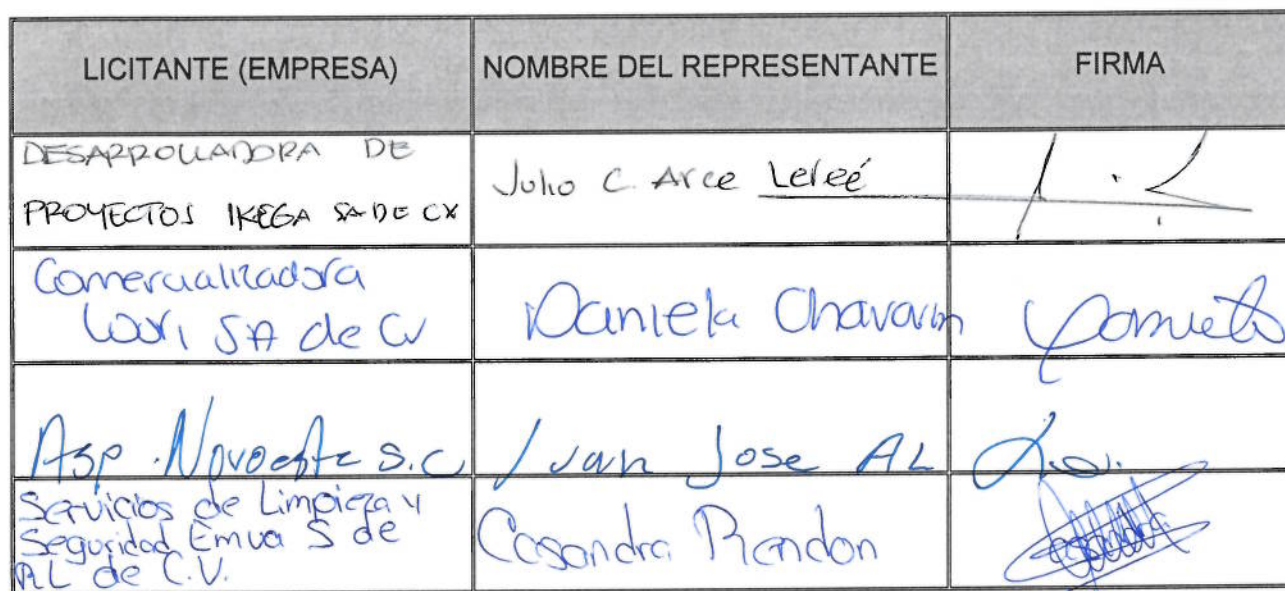 LICITANTE (EMPRESA) NOMBRE DEL REPRESENTANTE FIRMA
DESARROLLADORA DE
PROYECTOS IKEGA SA DE CV
Julio C. Arce Lereé
Comercializadora
SA de CV
Daniela Chavarin
S.C
Jose AL
Servicios de Limpieza y
Seguridad Emva S de
RL de C.V.
Casandra Rendon